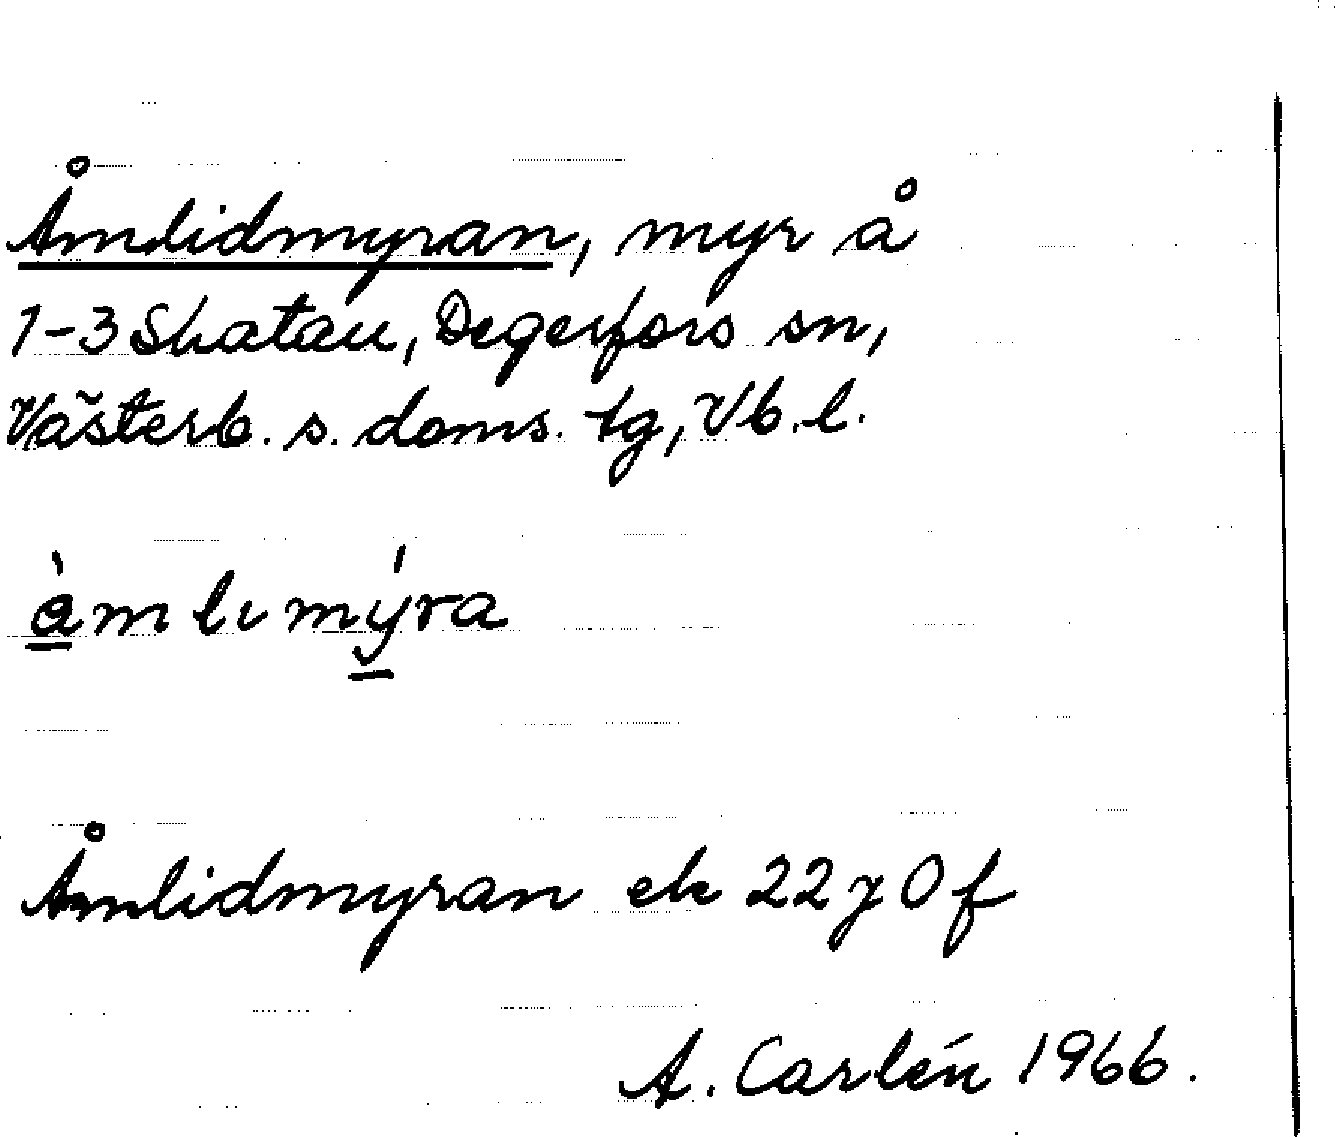 Åmlidmyran, myr å
1-3 Skatau, Degerfors sn,
Västerb. s. doms. tg, Vb. l.
àm lɩ mýra
Åmlidmyran ek 22 J 0 f
A. Carlén 1966.